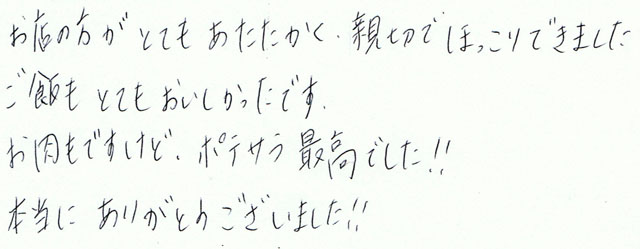 お店の方がとてもあたたかく、親切でほっこりできました
ご飯もとてもおいしかったです。
お肉もですけど、ポテサラ最高でした!!
本当にありがとうございました!!